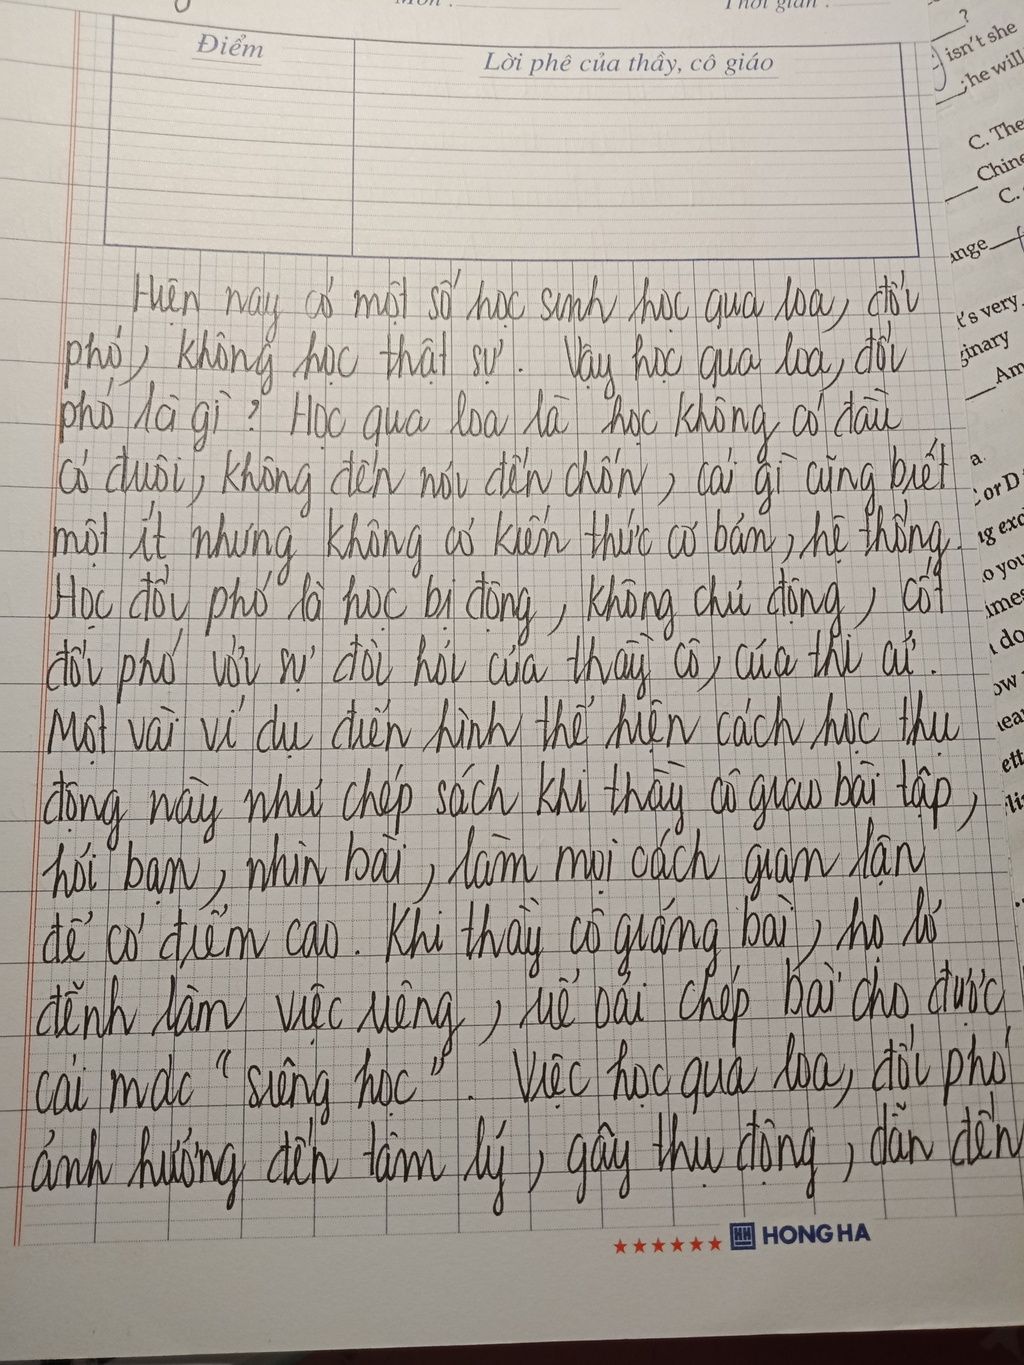 Môn : Thời gian :
Điểm
Lời phê của thầy, cô giáo
Hiện nay có một số học sinh học qua loa, đối
phó, không học thật sự. Vậy học qua loa, đối
phó là gì? Học qua loa là học không có đầu
có đuôi, không đến nơi đến chốn, cái gì cũng biết
một ít nhưng không có kiến thức cơ bản, hệ thống.
Học đối phó là học bị động, không chủ động, cốt
đối phó với sự đòi hỏi của thầy cô, của thi cử.
Một vài ví dụ điển hình thể hiện cách học thụ
động này như chép sách khi thầy cô giao bài tập,
hỏi bạn, nhìn bài, làm mọi cách gian lận
để có điểm cao. Khi thầy cô giảng bài, họ lơ
đễnh làm việc riêng, uể oải chép bài cho được
cái mác "siêng học". Việc học qua loa, đối phó
ảnh hưởng đến tâm lý, gây thụ động, dẫn đến
HONG HA
?
isn't she
he will
C. The
Chine
C.
ange
t's very
ginary
Am
a.
or D
ng exc
o you
imes
do
ow
lear
ett